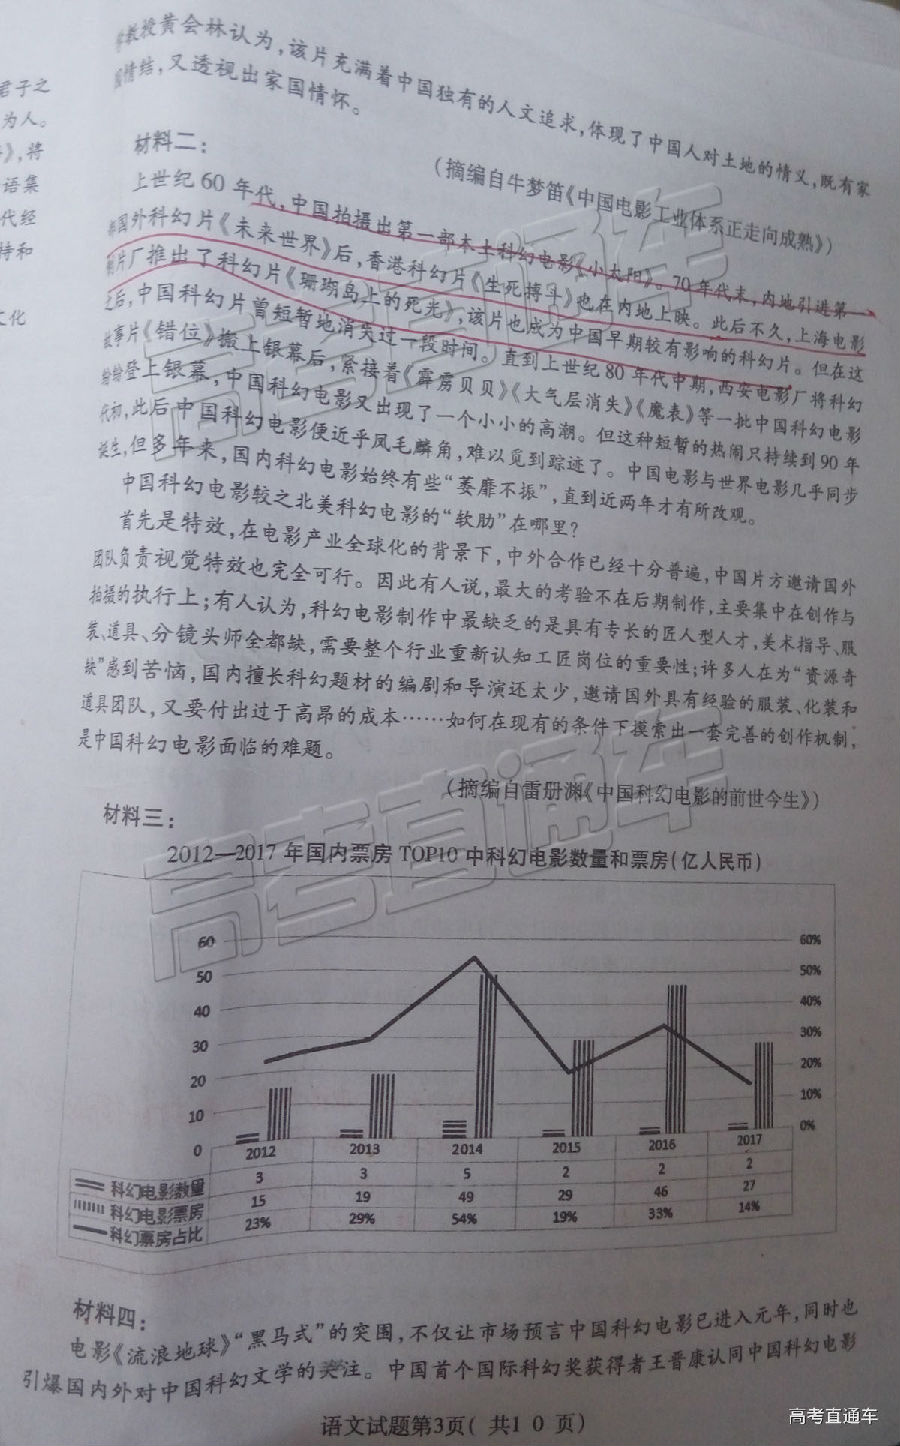 教授黄会林认为，该片充满着中国独有的人文追求，体现了中国人对土地的情义，既有家
情结，又透视出家国情怀。
（摘编自牛梦笛《中国电影工业体系正走向成熟》）
材料二：
上世纪60年代，中国拍摄出第一部本土科幻电影《小太阳》。70年代末，内地引进第一
国外科幻片《未来世界》后，香港科幻片《生死搏斗》也在内地上映。此后不久，上海电影
制片厂推出了科幻片《珊瑚岛上的死光》，该片也成为中国早期较有影响的科幻片。但在这
之后，中国科幻片曾短暂地消失过一段时间。直到上世纪80年代中期，西安电影厂将科幻
故事片《错位》搬上银幕后，紧接着《霹雳贝贝》《大气层消失》《魔表》等一批中国科幻电影
纷纷登上银幕，中国科幻电影又出现了一个小小的高潮。但这种短暂的热闹只持续到90年
代初，此后中国科幻电影便近乎凤毛麟角，难以觅到踪迹了。中国电影与世界电影几乎同步
诞生，但多年来，国内科幻电影始终有些“萎靡不振”，直到近两年才有所改观。
中国科幻电影较之北美科幻电影的“软肋”在哪里？
首先是特效，在电影产业全球化的背景下，中外合作已经十分普遍，中国片方邀请国外
团队负责视觉特效也完全可行。因此有人说，最大的考验不在后期制作，主要集中在创作与
拍摄的执行上；有人认为，科幻电影制作中最缺乏的是具有专长的匠人型人才，美术指导、服
装、道具、分镜头师全都缺，需要整个行业重新认知工匠岗位的重要性；许多人在为“资源奇
缺”感到苦恼，国内擅长科幻题材的编剧和导演还太少，邀请国外具有经验的服装、化装和
道具团队，又要付出过于高昂的成本……如何在现有的条件下摸索出一套完善的创作机制，
是中国科幻电影面临的难题。
（摘编自雷册渊《中国科幻电影的前世今生》）
材料三：
2012—2017年国内票房TOP10中科幻电影数量和票房（亿人民币）
60 60%
50 50%
40 40%
30 30%
20 20%
10 10%
0 0%
2012 2013 2014 2015 2016 2017
科幻电影数量 3 3 5 2 2 2
科幻电影票房 15 19 49 29 46 27
科幻票房占比 23% 29% 54% 19% 33% 14%
材料四：
电影《流浪地球》“黑马式”的突围，不仅让市场预言中国科幻电影已进入元年，同时也
引爆国内外对中国科幻文学的关注。中国首个国际科幻奖获得者王晋康认同中国科幻电影
语文试题第3页（共10页）
君子之
为人。
》，将
语集
代经
持和
文化
高考直通车
高考直通车
高考直通车